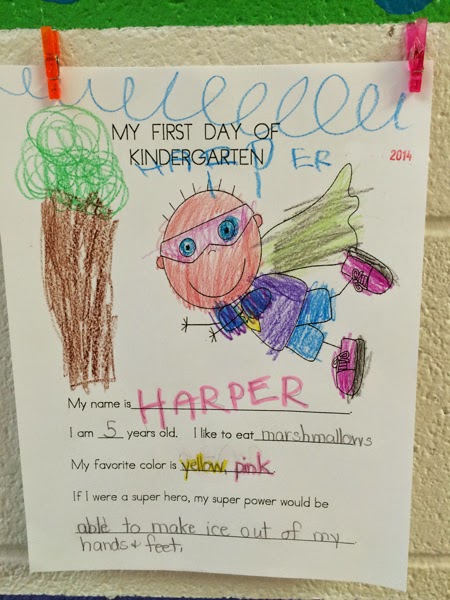 MY FIRST DAY OF
KINDERGARTEN
HARPER
2014
My name is HARPER
I am 5 years old. I like to eat marshmallows
My favorite color is yellow, pink
If I were a super hero, my super power would be
able to make ice out of my
hands & feet.